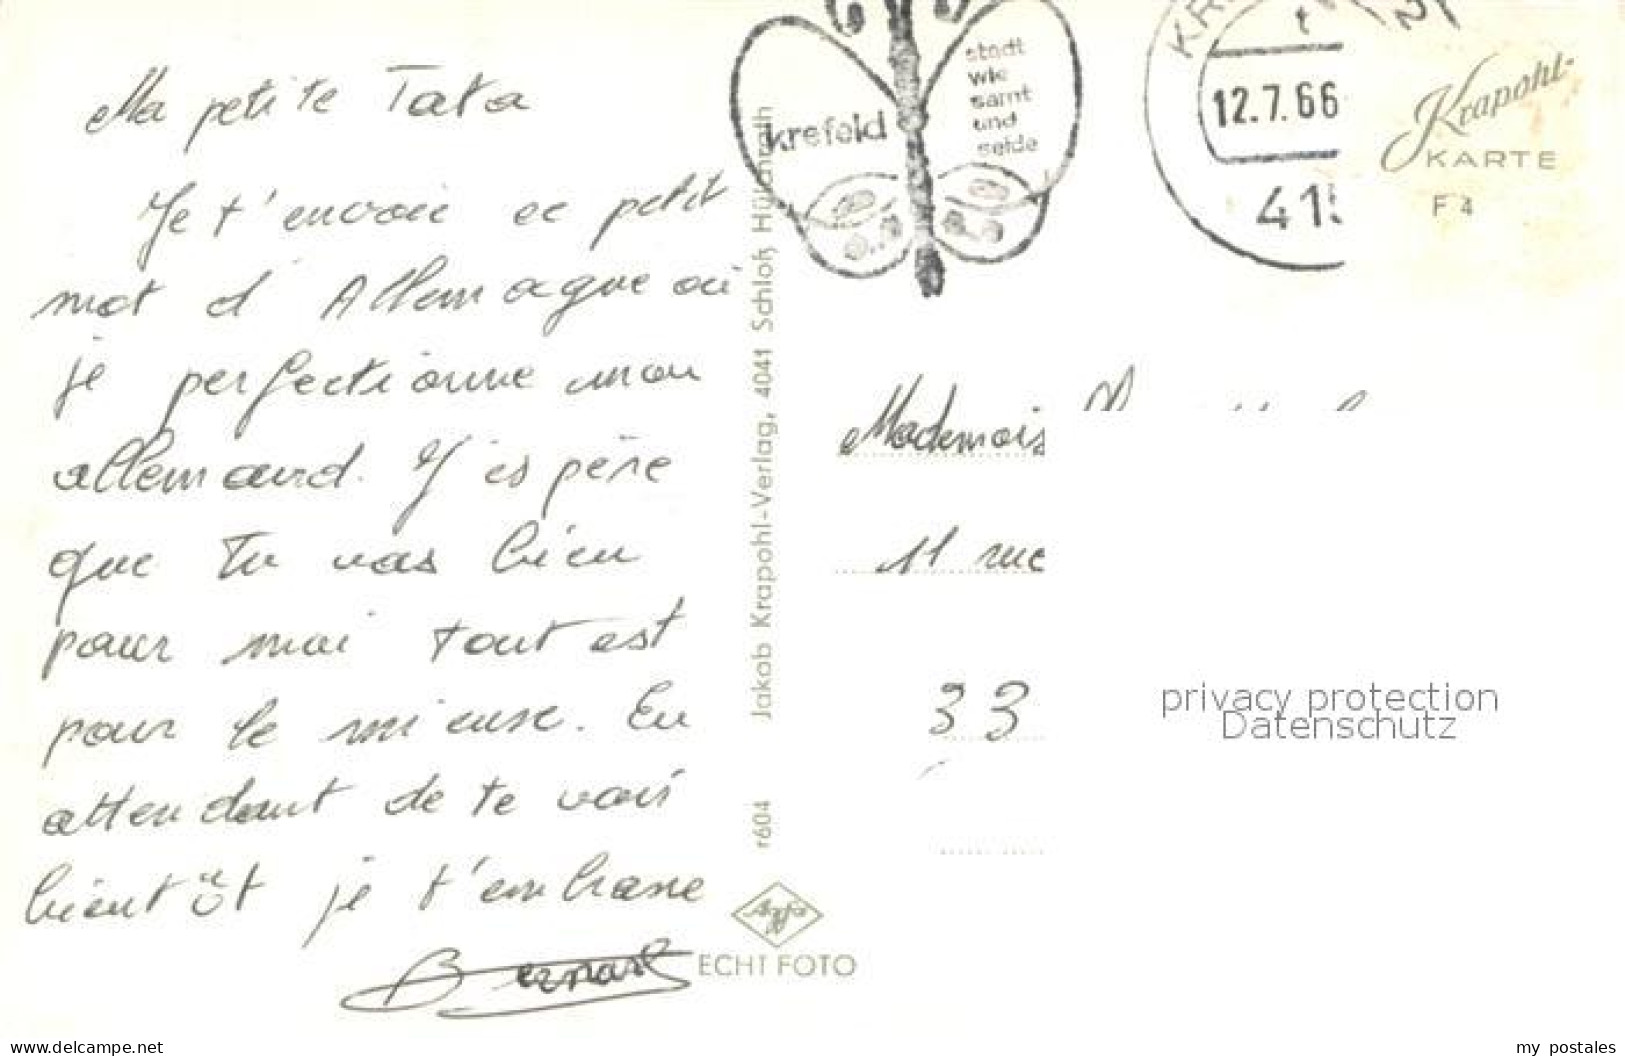 Ma petite Tata
Je t'envoie ce petit
mot d'Allemagne où
je perfectionne mon
allemand. J'espère
que tu vas bien
pour moi tout est
pour le mieux. En
attendant de te voir
bientôt je t'embrasse
Bernard
krefeld
stadt
wie
samt
und
seide
KR
t
2
12.7.66
415
Krapohl-
KARTE
F 4
Mademois
11 rue
33
r604 Jakob Krapohl-Verlag, 4041 Schloß Hülchrath
Agfa
ECHT FOTO
privacy protection
Datenschutz
delcampe.net
my_postales